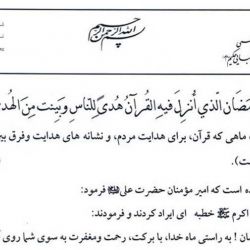 بسم الله الرحمن الرحیم
رمضان الذي أنزل فيه القرآن هدى للناس وبينت من الهدى
ماهی که قرآن، برای هدایت مردم، و نشانه های هدایت وفرق بین
ت).
ده است که امیر مؤمنان حضرت علی علیه السلام فرمود:
اکرم ﷺ خطبه ای ایراد کردند و فرمودند:
ن ! به راستی ماه خدا، با برکت، رحمت ومغفرت به سوی شما روی آ